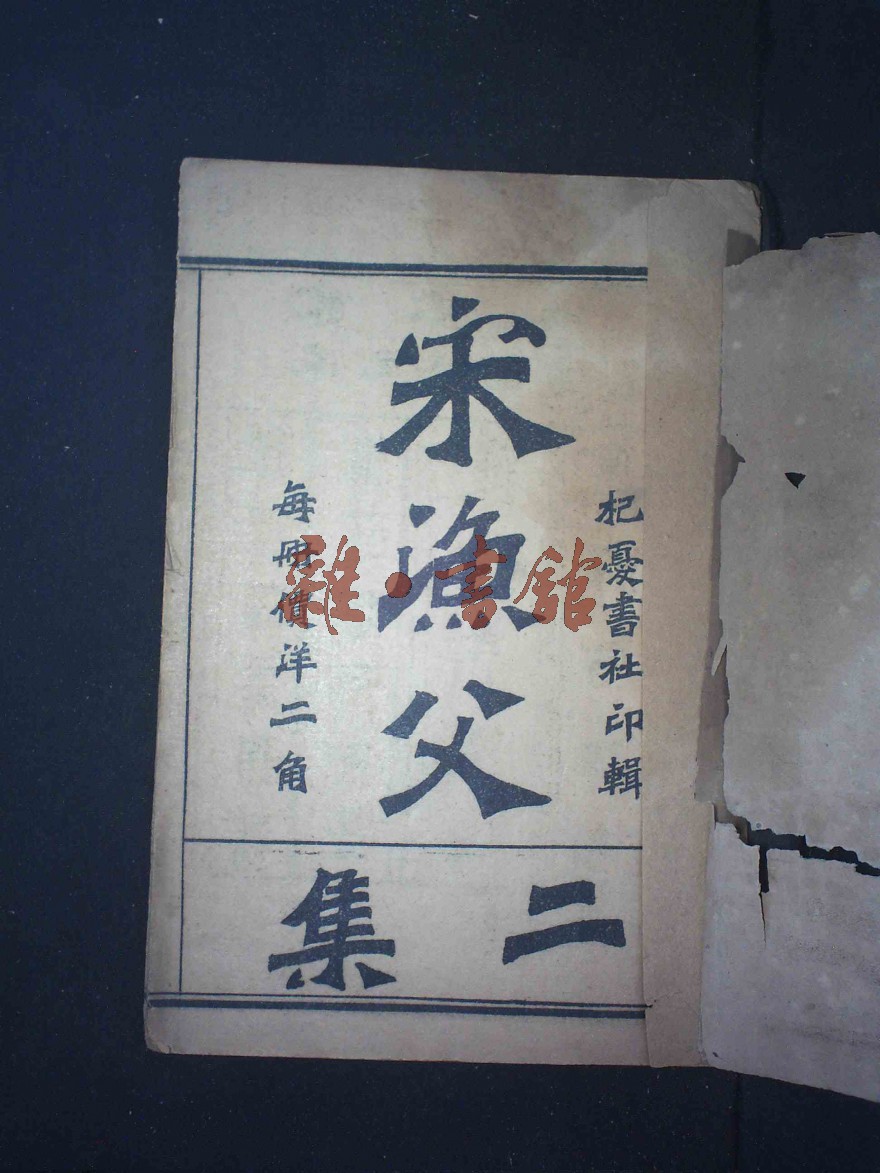 杞憂書社印輯
宋漁父
每冊價洋二角
二集
雜·書館